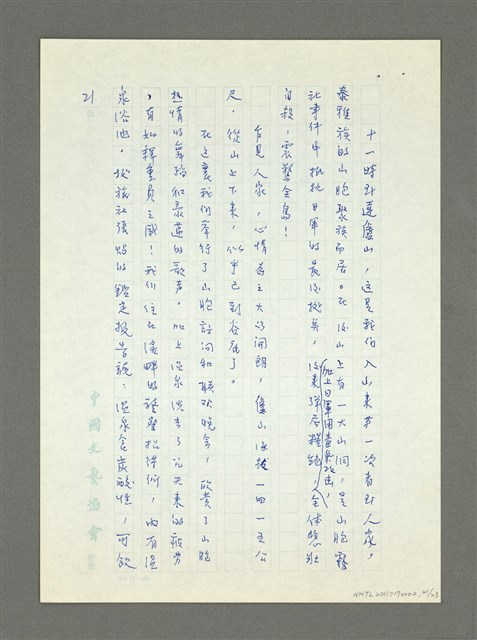 十一時到達廬山,這是我們入山來第一次看到人家,
泰雅族的山胞聚族而居。在後山上有一大山洞,是山胞霧
社事件中抵抗日軍的最後據点,後來彈盡糧絕,加上日軍用毒氣攻击,全体悲壯
自殺,震驚全島!
乍見人家,心情為之大為開朗,廬山海拔一四一五公
尺,從山上下來,似乎已到谷底了。
在這裏我們举行了山胞訪问和联欢晚会,欣賞了山胞
热情的舞蹈和柔蓮的歌声。加上溫泉洗去了几天來的疲劳
,有如釋重負之感!我们住在溪畔的碧華松得所,內有溫
泉浴池。據旅社張貼的鑑定报告說:温泉含炭酸性,可飲
21
中國文藝協會
NMTL20110170002_21/23